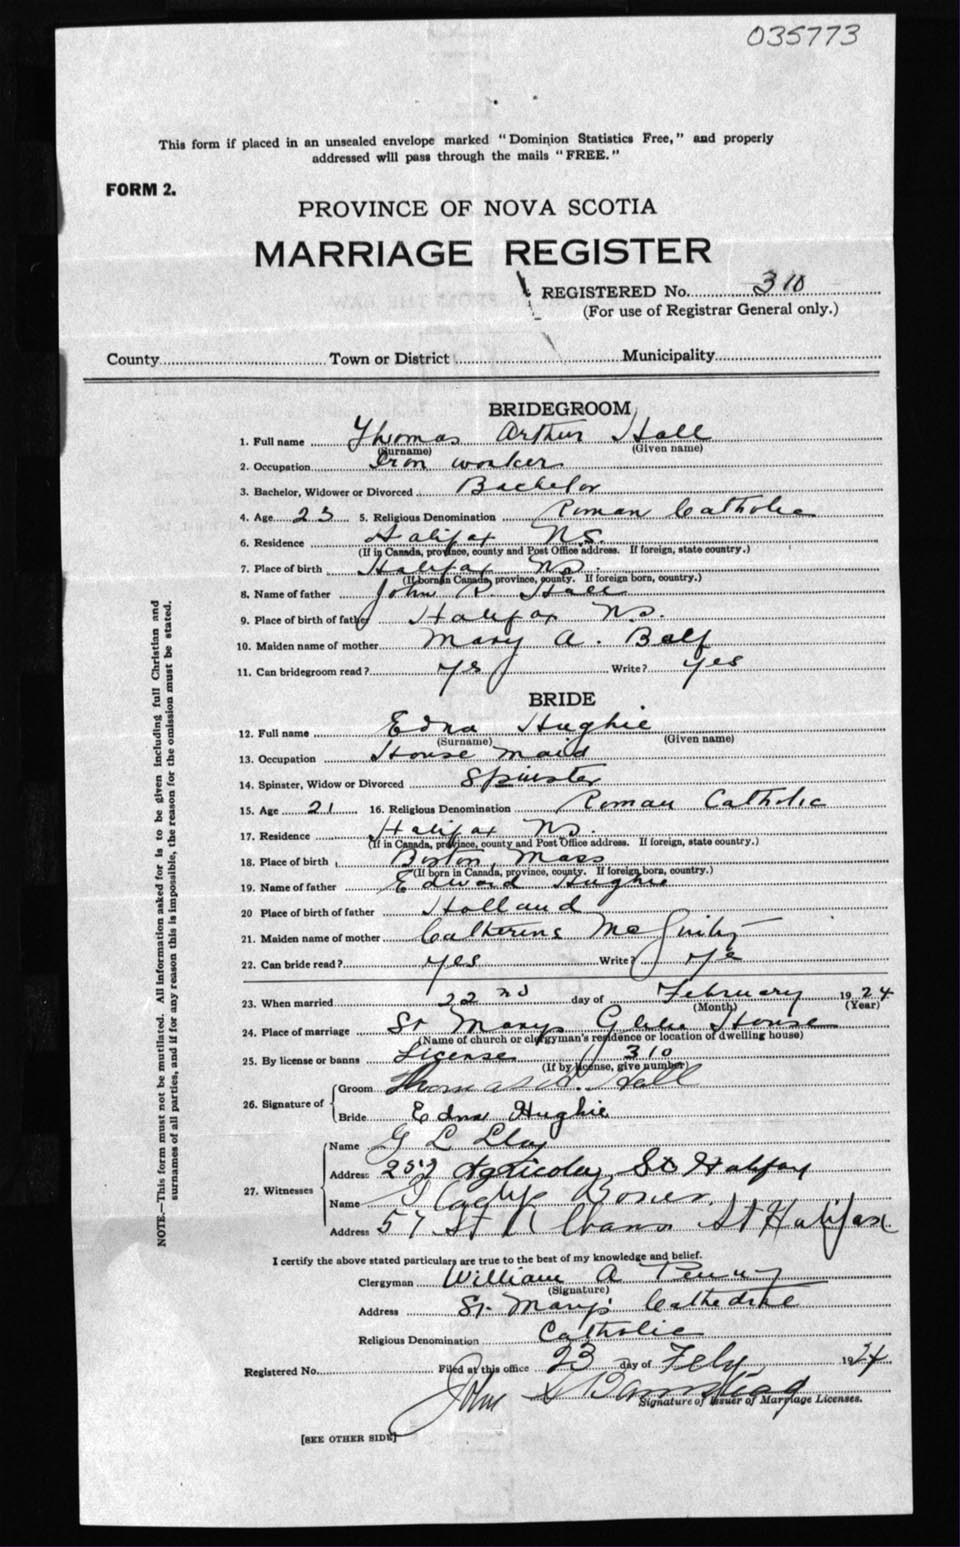 035773
This form if placed in an unsealed envelope marked "Dominion Statistics Free," and properly
addressed will pass through the mails "FREE."
FORM 2.
PROVINCE OF NOVA SCOTIA
MARRIAGE REGISTER
REGISTERED No. 310
(For use of Registrar General only.)
County Town or District Municipality
BRIDEGROOM
1. Full name Thomas Arthur Hall
(Surname) (Given name)
2. Occupation Iron worker
3. Bachelor, Widower or Divorced Bachelor
4. Age 23 5. Religious Denomination Roman Catholic
6. Residence Halifax NS.
(If in Canada, province, county and Post Office address. If foreign, state country.)
7. Place of birth Halifax Ns.
(If born in Canada, province, county. If foreign born, country.)
8. Name of father John R. Hall
9. Place of birth of father Halifax Ns.
10. Maiden name of mother Mary A.
11. Can bridegroom read? yes Write? yes
BRIDE
12. Full name Edna Hughie
(Surname) (Given name)
13. Occupation House maid
14. Spinster, Widow or Divorced Spinster
15. Age 21 16. Religious Denomination Roman Catholic
17. Residence Halifax Ns.
(If in Canada, province, county and Post Office address. If foreign, state country.)
18. Place of birth Boston, Mass
(If born in Canada, province, county. If foreign born, country.)
19. Name of father Edward Hughie
20 Place of birth of father Holland
21. Maiden name of mother Catherine
22. Can bride read? yes Write?
23. When married 22nd day of February 1924
(Month) (Year)
24. Place of marriage St Marys Glebe House
(Name of church or clergyman's residence or location of dwelling house)
25. By license or banns License 310
(If by license, give number)
26. Signature of Groom Thomas A. Hall
Bride Edna Hughie
27. Witnesses Name G L
Address 257 Agricola St Halifax
Name
Address 57 St Halifax
I certify the above stated particulars are true to the best of my knowledge and belief.
Clergyman William A Penny
(Signature)
Address St. Mary's Cathedral
Religious Denomination Catholic
Registered No. Filed at this office 23 day of Feby 1924
John
Signature of Issuer of Marriage Licenses.
[SEE OTHER SIDE]
NOTE.—This form must not be mutilated. All information asked for is to be given including full Christian and
surnames of all parties, and if for any reason this is impossible, the reason for the omission must be stated.